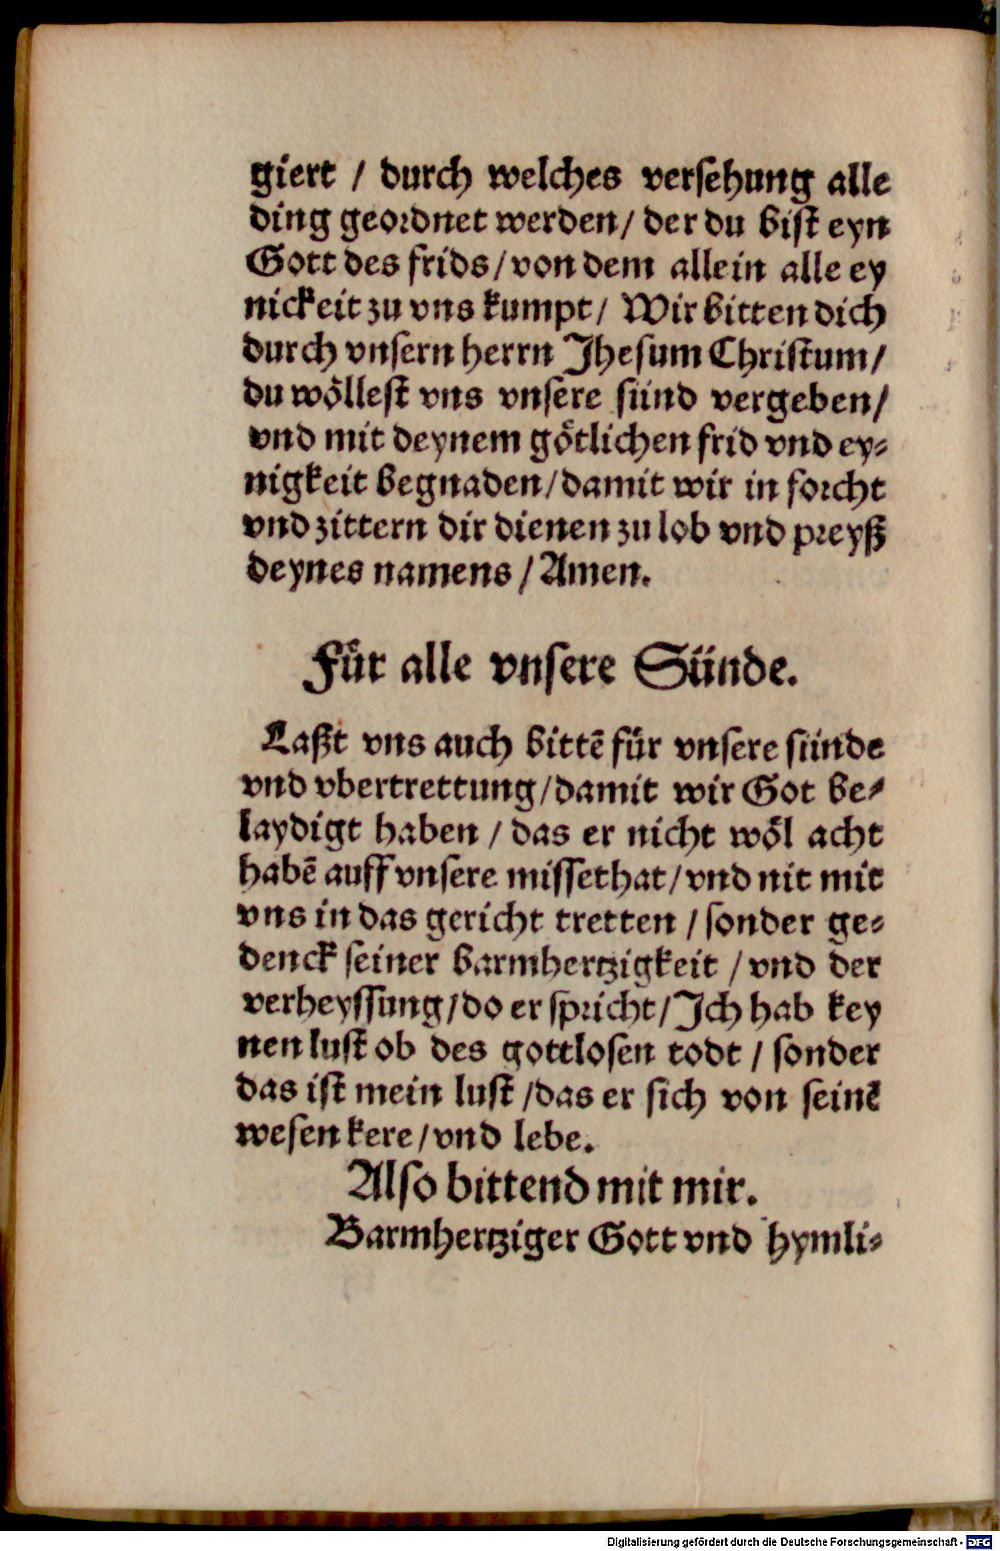 giert / durch welches versehung alle
ding geordnet werden / der du bist eyn
Gott des frids / von dem allein alle ey
nickeit zu vns kumpt / Wir bitten dich
durch vnsern herrn Jhesum Christum /
du wöllest vns vnsere sünd vergeben /
vnd mit deynem götlichen frid vnd ey⸗
nigkeit begnaden / damit wir in forcht
vnd zittern dir dienen zu lob vnd preyß
deynes namens / Amen.
Für alle vnsere Sünde.
Laßt vns auch bittē für vnsere sünde
vnd vbertrettung / damit wir Got be⸗
laydigt haben / das er nicht wöl acht
habē auff vnsere missethat / vnd nit mit
vns in das gericht tretten / sonder ge⸗
denck seiner barmhertzigkeit / vnd der
verheyssung / do er spricht / Jch hab key
nen lust ob des gottlosen todt / sonder
das ist mein lust / das er sich von seinē
wesen kere / vnd lebe.
Also bittend mit mir.
Barmhertziger Gott vnd hymli⸗
Digitalisierung gefördert durch die Deutsche Forschungsgemeinschaft - DFG